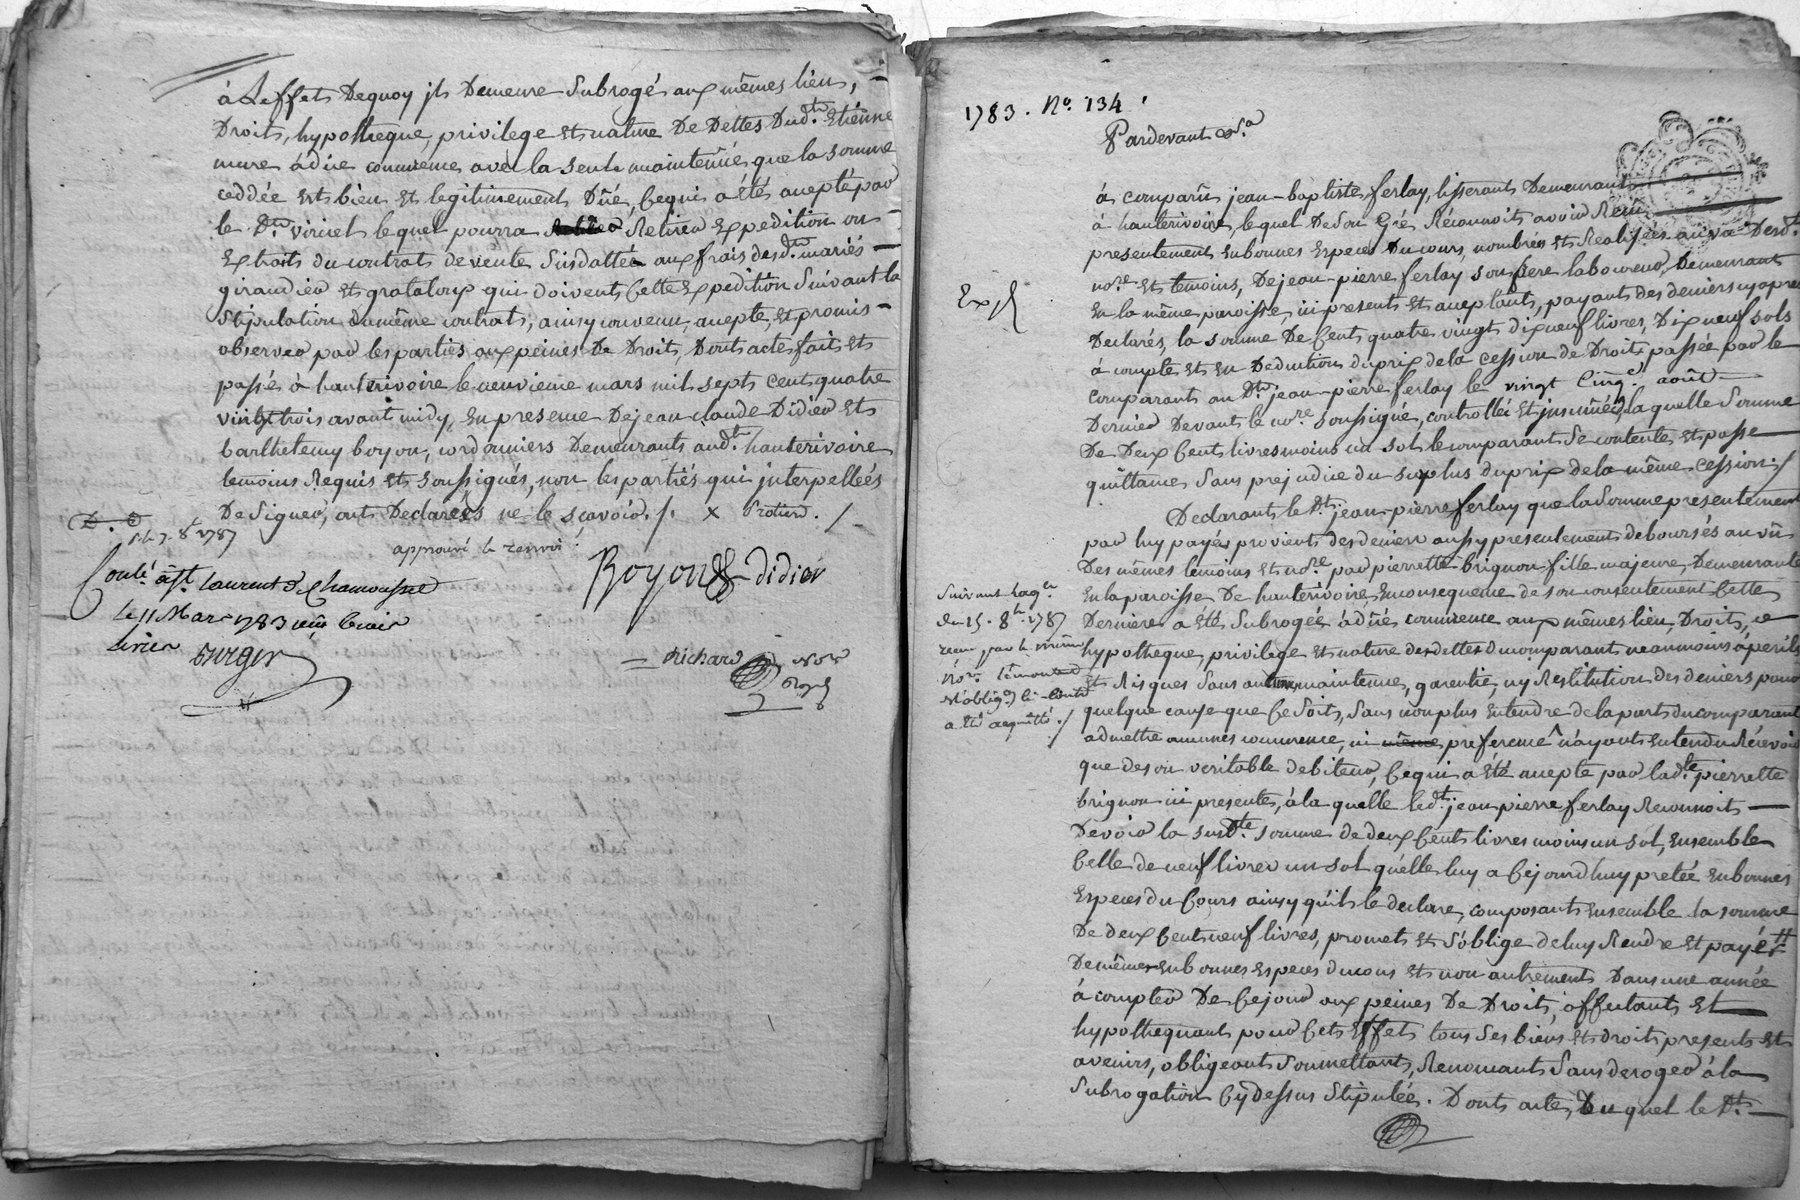 à Leffets Dequoy jls Demeure Subrogé aux mêmes lieu,
Droits, hypotheque, privilege et nature De Dettes Dud.t Etiénne
mure à dire concurence avec la seule maintenüe que la somme
ceddée est bien et legitimement Düe, Cequi a été accepté par
le d.t viricel lequel pourra Retirer Expedition ou
Extraits du contrats de vente Susdattée aux frais desd.ts mariés
giraudier et grataloup qui doivents Cette Expedition Suivant la
Stipulation dumême contrats, ainsy convenu, accepté, et promis
observer par les parties aux peines De Droits, Donts acte, faits et
passés à hauterivoire le neuvieme mars mil septs cents quatre
vingt trois avant midy, En presence Dejean claude Didier et
barlhelemy boyon, cordonniers Demeurants aud.t hauterivoire
temoins Requis et soussignés, non les partiés qui jnterpellées
De Signer, ont Declarées ne le sçavoir ./. x ./.
approuvé le renvoi
Boyon Didier
Conlé à St. laurent De Chamousset
Le 11 Mars 1783 reçu
Surger
Richard nore
Royal
1783. No. 134
Pardevant &.a
à comparû jean-baptiste ferlay, tisserants Demeurants
à hauterivoire, lequel De son Gré Réconnoit avoir Recu
presentement En bonnes Especes Du cours, nombrées et Realisées au vû Desd.
no.re et temoins, De jean-pierre ferlay son frere laboureur, Demeurant
En la même paroisse, ici presents et acceptants, payants des deniers
Declarés, la somme De Cents quatre vingt dix neuf livres, Dix neuf sols
à compte et en Deduction du prix de la cession de Droits passée par le
comparants au D.t jean-pierre ferlay le vingt Cinq.e août
Dernier Devants le no.re soussigné, controllée et jnsinuée, la quelle Somme
De Deux Cents livres moins un sol le comparant se contente et passe
quittance Sans prejudice du surplus du prix de la même cession ./
Exp.é
Declarants le d.t jean-pierre ferlay que la Somme presentement
par luy payée provients des deniers aussy presentements deboursés au vû
Des mêmes temoins et no.re par pierrette brignon fille majeure Demeurante
En la paroisse De hauterivoire, En consequence de son consentement Cette
Derniere a été Subrogée à dûe concurence aux mêmes lieu, Droits,
hypotheque, privilege et nature des dettes du comparant neanmoins à perils
et Risques Sans aucune maintenue, garentie, ny Restitution des deniers pour
quelque cause que Ce Soits, sans non plus Entendre de la parts du comparant
admettre aucunes concurence, ni preference n'ayants Entendu Récevoir
que de son veritable debiteur, Cequi a été accepté par lad.te pierrette
brignon ici presente, à la quelle led.t jean pierre ferlay Reconnoit
Devoir la susd.te somme de deux Cents livres moins un sol, Ensemble
Celle de neuf livres un sol qu'elle luy a Cejourd'huy pretée En bonnes
Especes du Cours ainsy qu'ils le declare, composants Ensemble la somme
De deux Cents neuf livres, promets et s'oblige de luy Rendre et payer
De même En bonnes Especes du cous et non autrements Dans une année
à compter De Cejour aux peines De Droits, affectants et
hypothequants pour Cets Effets tous ses biens et droits presents et
avenirs, obligeants Soumettants, Renoncants Sans deroger à la
Subrogation Cydessus Stipulée. Donts acte, Du quel le D.t
Suivant
du 15. 8.bre 1787
reçu par le même
no.re
a été acquitté ./